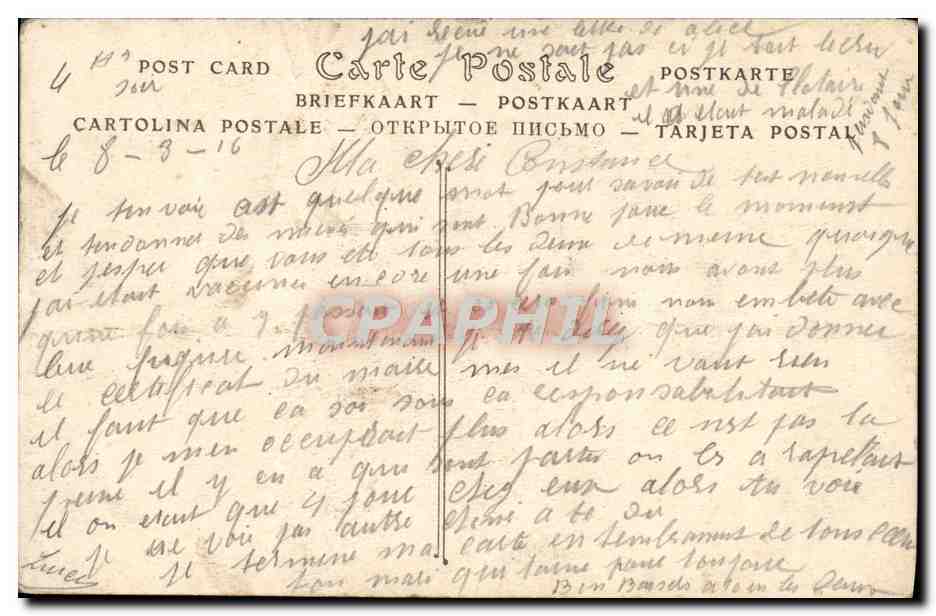 jai recue une lettre de alice
je ne sait pas si je tait lecri
et une de Clotaire
il est etait malade
pendant 8 jour
4 h
soir
POST CARD
Carte Postale
POSTKARTE
BRIEFKAART — POSTKAART
CARTOLINA POSTALE — ОТКРЫТОЕ ПИСЬМО — TARJETA POSTAL
le 8-3-16
Ma cheri Constance
je tenvoie quelque mot pour savoir de test nouvelle
et tendonner des mienne qui sont Bonne pour le moment
et jesper que vous et tous les deux de meme quoique
jai etait vacciner encore une fois nous avont plus
quune fois a y passer nous embete avec
leur piqure maintenant je que jai donner
le certificat du maire mes il ne vaut rien
il faut que ca soi sous ca responsabilitait
alors je men occuperait plus alors ce nest pas la
peine il y en a qui sont partis on les a rapelait
il on etait que 4 jour chez eux alors tu voie
je ne voie pas autre chose a te dir
je termine ma carte en tembrassant de tous coeur
ton mari qui taime pour toujour
Lucien
Bons Baisers a vous les deux
CPAPHIL